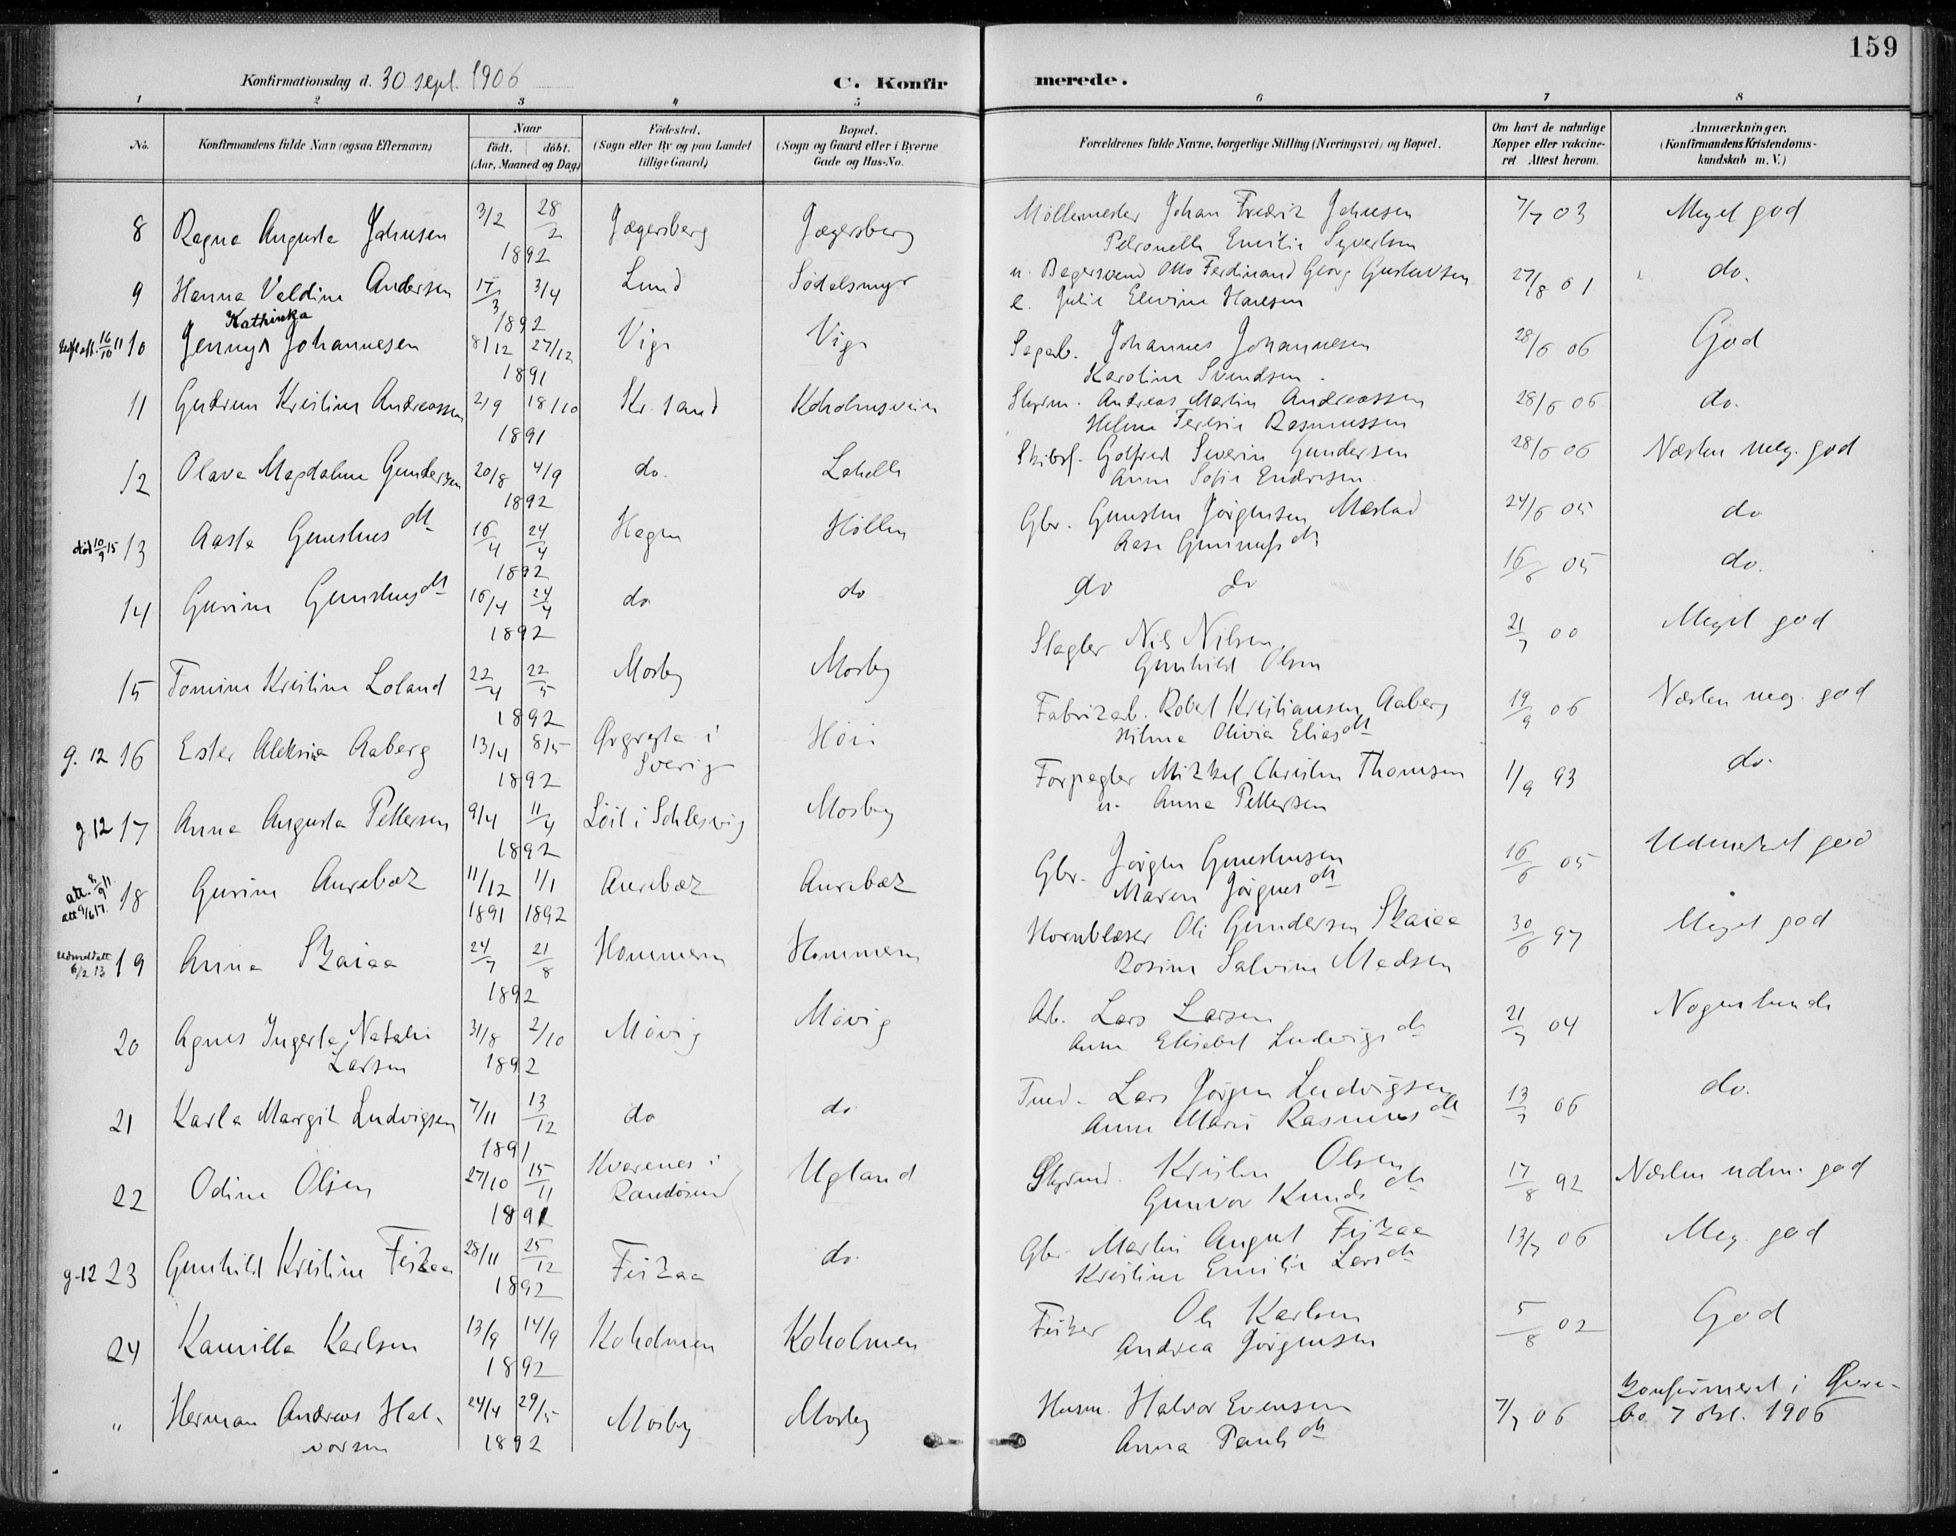 159
Konfirmationsdag d. 30 sept. 1906
C. Konfirmerede.
1 2 3 4 5 6 7 8
No. Konfirmandens fulde Navn (ogsaa Efternavn) Naar født. døbt. (Aar, Maaned og Dag) Fødested. (Sogn eller By og paa Landet tillige Gaard) Bopæl. (Sogn og Gaard eller i Byerne Gade og Hus-No. Forældrenes fulde Navne, borgerlige Stilling (Næringsvei) og Bopæl. Om havt de naturlige Kopper eller vakcineret Attest herom. Anmærkninger. (Konfirmandens Kristendomskundskab m. V.)
8 Ragna Augusta Johnsen 3/2 28/2 1892 Jægersberg Jægersberg Møllemester Johan Fredrik Johnsen 7/7 03 Meget god
Petronelle Emilie Syvertsen
9 Hanna Valdine Andersen 17/3 3/4 1892 Lund Sødalsmyr u. Bagersvend Otto Ferdinand Georg Gustavsen 27/8 01 do.
e. Julie Elevine Hansen
16/10 11 10 Jenny Kathinka Johannesen 8/12 27/12 1891 Vige Vige Sagarb. Johannes Johannesen 28/6 06 God
Karoline Svendsen.
11 Gudrun Kristine Andreassen 2/9 18/10 1891 Kr.sand Koholmsveien Styrm. Andreas Martin Andreassen 28/6 06 do.
Helene Teresie Rasmussen
12 Olava Magdalene Gundersen 20/8 4/9 1892 do. Lahelle Skibsf. Gotfred Severin Gundersen 28/6 06 Næsten meg. god
Anne Sofie Endresen
død 10/9 15 13 Aaste Gunstensdtr 16/4 24/4 1892 Hagen Høllen Gbr. Gunsten Jørgensen Mæstad 24/6 05 do
Aase Gunnufsdtr
14 Gurine Gunstensdtr 16/4 24/4 1892 do do do do 16/6 05 do.
15 Tomine Kristine Loland 22/4 22/5 1892 Mosby Mosby Slagter Nils Nilsen 21/7 00 Meget god
Gunhild Olsen
g. 12 16 Ester Aleksia Aaberg 13/4 8/5 1892 Ørgryte i Sverig Høie Fabrikarb. Robert Kristiansen Aaberg 19/9 06 Næsten meg. god
Hilma Olivia Eliasdtr
g. 12 17 Anna Augusta Pettersen 9/4 11/4 1892 Løit i Schlesvig Mosby Forpagter Mikkel Christen Thomsen 1/9 93 do.
u. Anna Pettersen
att. 8/9 11. att 9/6 17. 18 Gurine Aurebæk 11/12 1/1 1891 1892 Aurebæk Aurebæk Gbr. Jørgen Gunstensen 16/6 05 Udmerket god
Maren Jørgensdtr
udmeld att 6/2 13 19 Anna Skaiaa 24/7 21/8 1892 Hommeren Hommeren Hornblæser Ole Gundersen Skaiaa 30/6 97 Meget god
Rosine Salvine Madsen
20 Agnes Ingerte Natalie Larsen 31/8 2/10 1892 Møvig Møvig Arb. Lars Larsen 21/7 04 Nogenlunde
Anne Elisabet Ludvigsdtr
21 Karla Margit Ludvigsen 7/11 13/12 1891 do do Tmd. Lars Jørgen Ludvigsen 13/7 06 do.
Anne Marie Rasmusdtr
22 Odine Olsen 27/10 15/11 1891 Kvarenes i Randøsund Ugland Styrmd. Kristen Olsen 17/8 92 Næsten udm. god
Gunvor Knudsdtr
g. 12 23 Gunhild Kristine Fiskaa 28/11 25/12 1892 Fiskaa do. Gbr. Martin August Fiskaa 13/7 06 Meg. god
Kristine Emilie Larsdtr
24 Kamilla Karlsen 13/9 14/9 1892 Koholmen Koholmen Fisker Ole Karlsen 5/8 02 God
Andrea Jørgensen
" Herman Andreas Halvorsen 24/4 29/5 1892 Mosby Mosby Husm. Halvor Evensen 7/7 06 Konfirmeret i Øvrebø 7 okt. 1906
Anna Paulsdtr